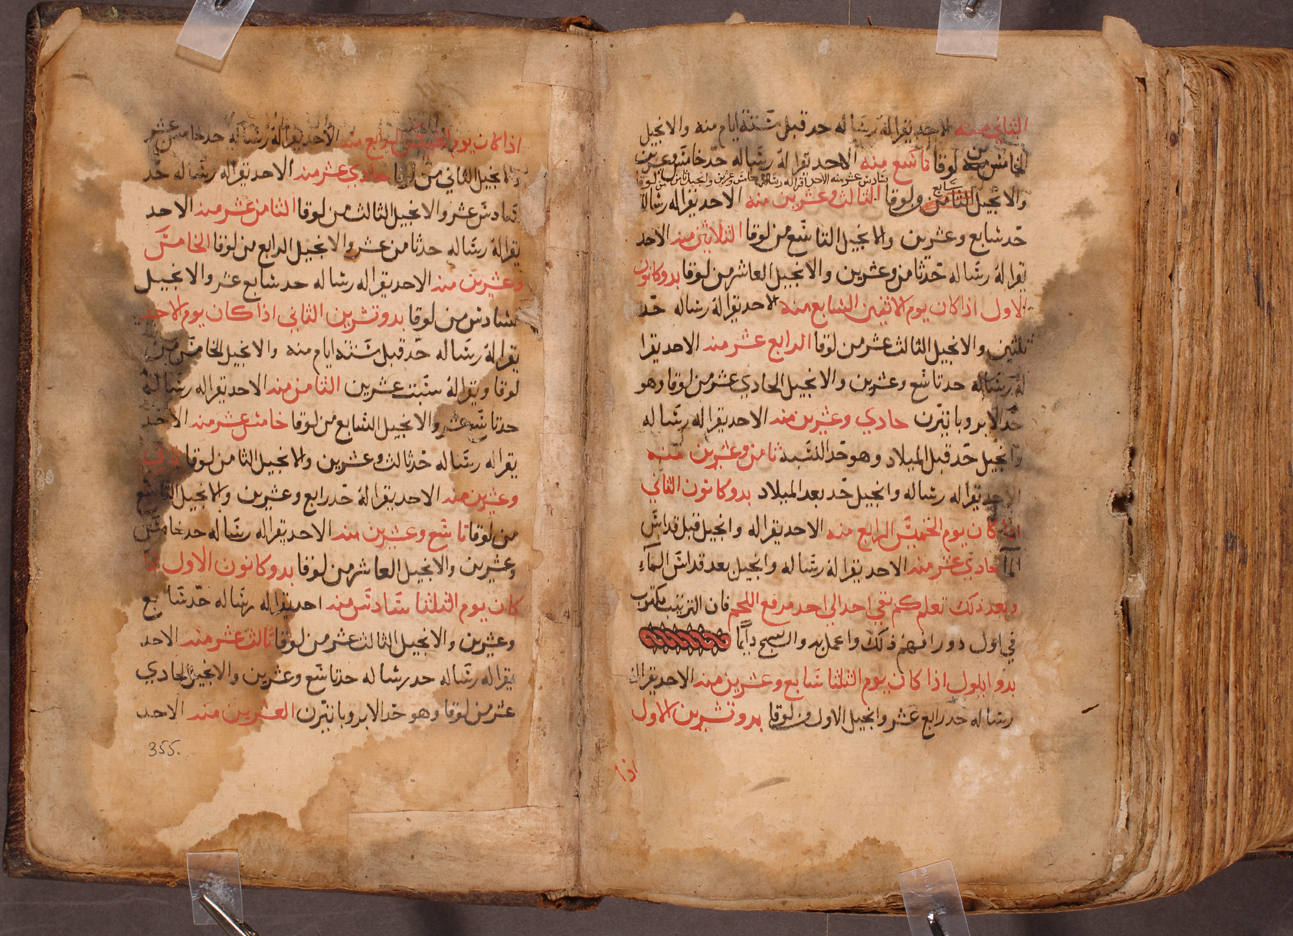 الثاني منه الاحد يقرا له رساله حد قبل ستة ايام منه والانجيل
الخامس من لوقا تاسع منه الاحد يقرا له رساله حد خامس وعشرين
سادس عشر منه الاحد يقرا له رساله
والانجيل الثامن من لوقا الثالث وعشرين منه الاحد يقرا له رساله
سابع
حد سابع وعشرين والانجيل التاسع من لوقا الثلاثين منه الاحد
يقرا له رساله حد ثامن وعشرين والانجيل العاشر من لوقا بدو كانون
الاول اذا كان يوم الاثنين السابع منه الاحد يقرا له رساله حد
ثلثين والانجيل الثالث عشر من لوقا الرابع عشر منه الاحد يقرا
له رساله حد تاسع وعشرين والانجيل الحادي عشر من لوقا وهو
حد الابروباتترن حادي وعشرين منه الاحد يقرا له رساله
وانجيل حد قبل الميلاد وهو حد النسبه ثامن وعشرين منه
الاحد يقرا له رساله وانجيل حد بعد الميلاد بدو كانون الثاني
اذا كان يوم الخميس الرابع منه الاحد يقرا له وانجيل قبل قداس
الما حادي عشر منه الاحد يقرا له رساله وانجيل بعد قداس الماء
وبعد ذلك تعلم كم بقي احد الى احد مرفع اللحم فان الترتيب مكتوب
في اول دورا فهم ذلك واعمل به والسبح دايما
بدو ايلول اذا كان يوم الثلثا سابع وعشرين منه الاحد يقرا له
رساله حد رابع عشر وانجيل الاول من لوقا بدو تشرين الاول
اذا
اذا كان يوم الخميس الرابع منه الاحد يقرا له رساله حد خامس عشر
والانجيل الثاني من لوقا حادي عشر منه الاحد يقرا له رساله حد
سادس عشر والانجيل الثالث من لوقا الثامن عشر منه الاحد
يقرا له رساله حد ثامن عشر والانجيل الرابع من لوقا الخامس
وعشرين منه الاحد يقرا له رساله حد سابع عشر والانجيل
السادس من لوقا بدو تشرين الثاني اذا كان يوم الاحد
يقرا له رساله حد قبل ستة ايام منه والانجيل الخامس من
لوقا ويقرا له سبت عشرين الثامن منه الاحد يقرا له رساله
حد تاسع عشر والانجيل السابع من لوقا خامس عشر منه الاحد
يقرا له رساله حد ثالث وعشرين والانجيل الثامن لوقا ثاني
وعشرين منه الاحد يقرا له حد رابع وعشرين والانجيل التاسع
من لوقا تاسع وعشرين منه الاحد يقرا له رساله حد خامس
وعشرين والانجيل العاشر من لوقا بدو كانون الاول
كان يوم الثلثا سادس منه احد يقرا له رساله حد سابع
وعشرين والانجيل الثالث عشر من لوقا ثالث عشر منه الاحد
يقرا له رساله حد رساله حد تاسع وعشرين والانجيل الحادي
عشر من لوقا وهو حد الابروباتترن العشرين منه الاحد
355.